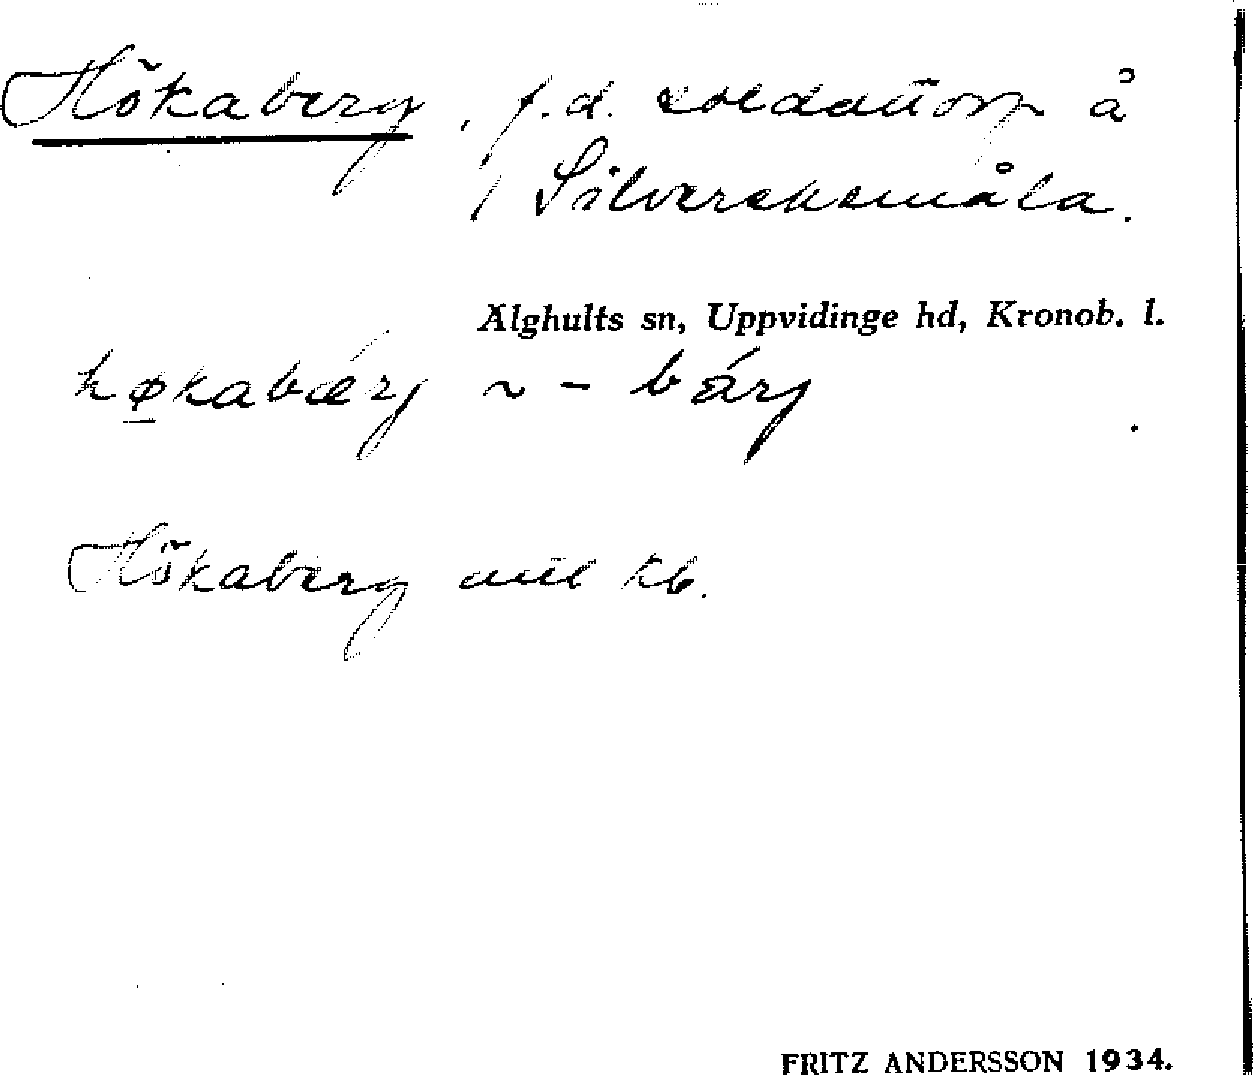 Hökaberg, f.d. soldattorp å
Silvereksmåla.
Älghults sn, Uppvidinge hd, Kronob. l.
hø̱kabǽrj ~ – bárj
Hökaberg kb.
FRITZ ANDERSSON 1934.